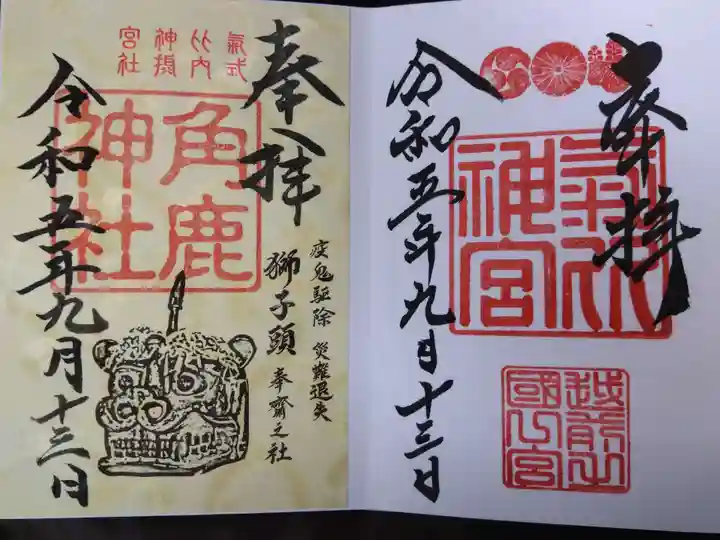 奉拝
氣比神宮
越前之
國一宮
令和五年九月十三日
奉拝
疫鬼驅除 災難退失
獅子頭 奉齋之社
氣比神宮
式内摂社
角鹿
神社
令和五年九月十三日